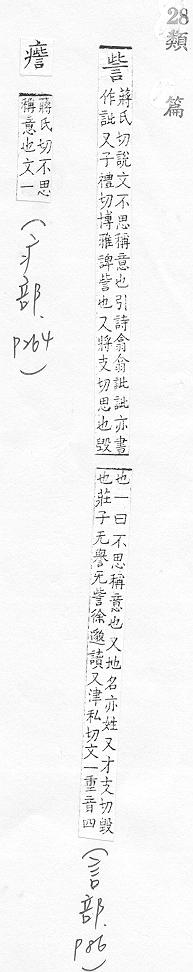 28類篇
訾
蔣氏切說文不思稱意也引詩翕翕訿訿亦書
作訿又子禮切博雅諀訾也又將支切思也毀
也一曰不思稱意也又地名亦姓又才支切毀
也莊子无譽无訾徐邈讀又津私切文一重音四
(言部.P86)
蔣氏切不思
稱意也文一
(疒部.P264)